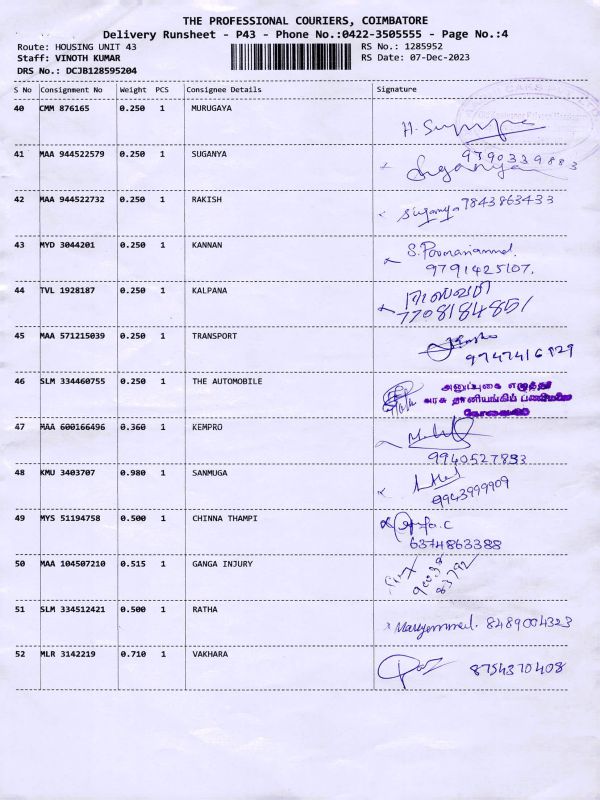 THE PROFESSIONAL COURIERS, COIMBATORE
Delivery Runsheet - P43 - Phone No.:0422-3505555 - Page No.:4
Route: HOUSING UNIT 43 RS No.: 1285952
Staff: VINOTH KUMAR RS Date: 07-Dec-2023
DRS No.: DCJB128595204
S No Consignment No Weight PCS Consignee Details Signature
40 CMM 876165 0.250 1 MURUGAYA
H.
41 MAA 944522579 0.250 1 SUGANYA 9790339883
Suganya
42 MAA 944522732 0.250 1 RAKISH Suganya 7843863433
43 MYD 3044201 0.250 1 KANNAN S.
9791425107.
44 TVL 1928187 0.250 1 KALPANA
7708184851
45 MAA 571215039 0.250 1 TRANSPORT
9747416929
46 SLM 334460755 0.250 1 THE AUTOMOBILE அனுப்புகை எழுத்தர்
அரசு தானியங்கிப் பணிமனை
கோவை
47 MAA 600166496 0.360 1 KEMPRO
9940527893
48 KMU 3403707 0.980 1 SANMUGA
9943999909
49 MYS 51194758 0.500 1 CHINNA THAMPI
6374863388
50 MAA 104507210 0.515 1 GANGA INJURY
51 SLM 334512421 0.500 1 RATHA 8489004323
52 MLR 3142219 0.710 1 VAKHARA 8754370408